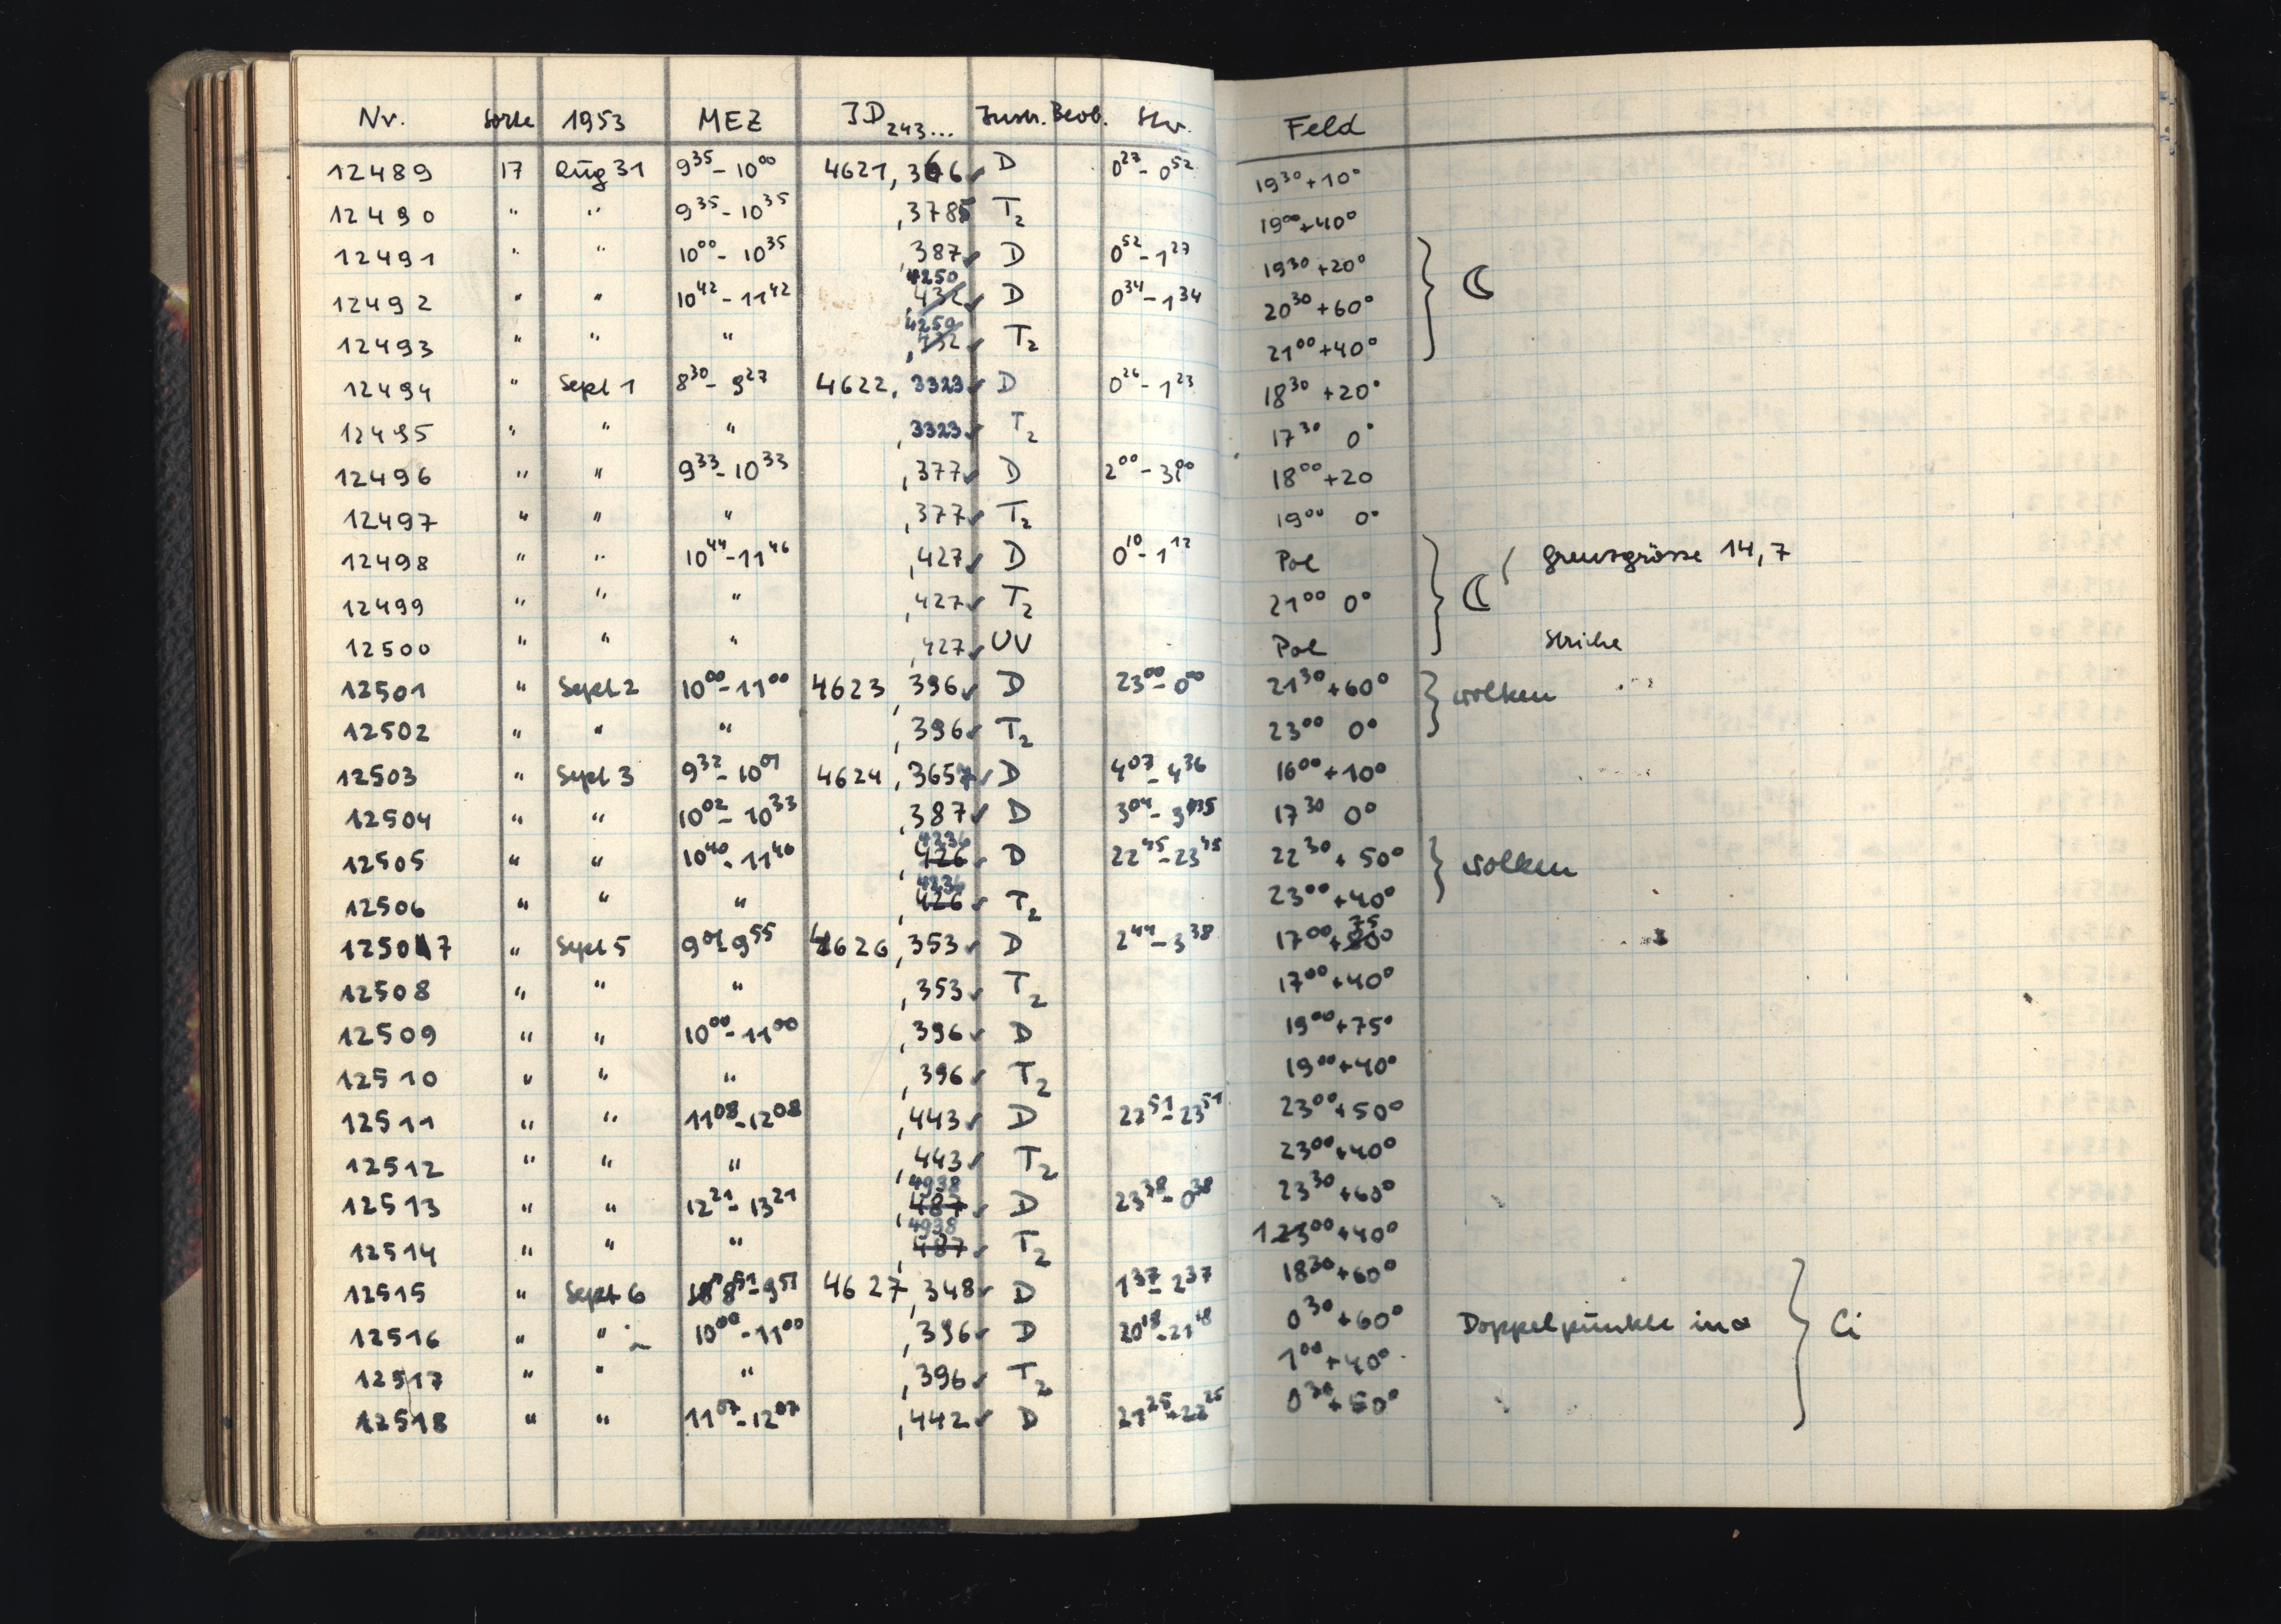 Nr. Sorte 1953 MEZ JD 243... Instr. Beob. Stw. Feld
12489 17 Aug 31 9³⁵-10⁰⁰ 4621,366 D 0²⁷-0⁵² 19³⁰+10°
12490 " " 9³⁵-10³⁵ ,3785 T₂ 19⁰⁰+40°
12491 " " 10⁰⁰-10³⁵ ,387 D 0⁵²-1²⁷ 19³⁰+20°
12492 " " 10⁴²-11⁴² 4250 ,432 D 0³⁴-1³⁴ 20³⁰+60° ☾
12493 " " " 4250 ,432 T₂ 21⁰⁰+40°
12494 " Sept 1 8³⁰-9²⁷ 4622,3323 D 0²⁶-1²³ 18³⁰+20°
12495 " " " ,3323 T₂ 17³⁰ 0°
12496 " " 9³³-10³³ ,377 D 2⁰⁰-3⁰⁰ 18⁰⁰+20
12497 " " " ,377 T₂ 19⁰⁰ 0°
12498 " " 10⁴⁴-11⁴⁶ ,427 D 0¹⁰-1¹² Pol Grenzgrösse 14,7
12499 " " " ,427 T₂ 21⁰⁰ 0° ☾
12500 " " " ,427 UV Pol Striche
12501 " Sept 2 10⁰⁰-11⁰⁰ 4623,396 D 23⁰⁰-0⁰⁰ 21³⁰+60° Wolken
12502 " " " ,396 T₂ 23⁰⁰ 0°
12503 " Sept 3 9³²-10⁰¹ 4624,3657 D 4⁰⁷-4³⁶ 16⁰⁰+10°
12504 " " 10⁰²-10³³ ,387 D 3⁰⁴-3³⁵ 17³⁰ 0°
12505 " " 10⁴⁰-11⁴⁰ 4236 ,426 D 22⁴⁵-23⁴⁵ 22³⁰+50° Wolken
12506 " " " 4236 ,426 T₂ 23⁰⁰+40°
12507 " Sept 5 9⁰¹-9⁵⁵ 4626,353 D 2⁴⁴-3³⁸ 17⁰⁰+75 80°
12508 " " " ,353 T₂ 17⁰⁰+40°
12509 " " 10⁰⁰-11⁰⁰ ,396 D 19⁰⁰+75°
12510 " " " ,396 T₂ 19⁰⁰+40°
12511 " " 11⁰⁸-12⁰⁸ ,443 D 22⁵¹-23⁵¹ 23⁰⁰+50°
12512 " " " ,443 T₂ 23⁰⁰+40°
12513 " " 12²¹-13²¹ 4938 ,487 D 23³⁸-0³⁸ 23³⁰+60°
12514 " " " 4938 ,487 T₂ 123⁰⁰+40°
12515 " Sept 6 8⁵¹-9⁵¹ 4627,348 D 1³⁷-2³⁷ 18³⁰+60°
12516 " " 10⁰⁰-11⁰⁰ ,396 D 20¹⁸-21¹⁸ 0³⁰+60° Doppelpunkte in α Ci
12517 " " " ,396 T₂ 1⁰⁰+40°
12518 " " 11⁰⁷-12⁰⁷ ,442 D 21²⁵-22²⁵ 0³⁰+50°